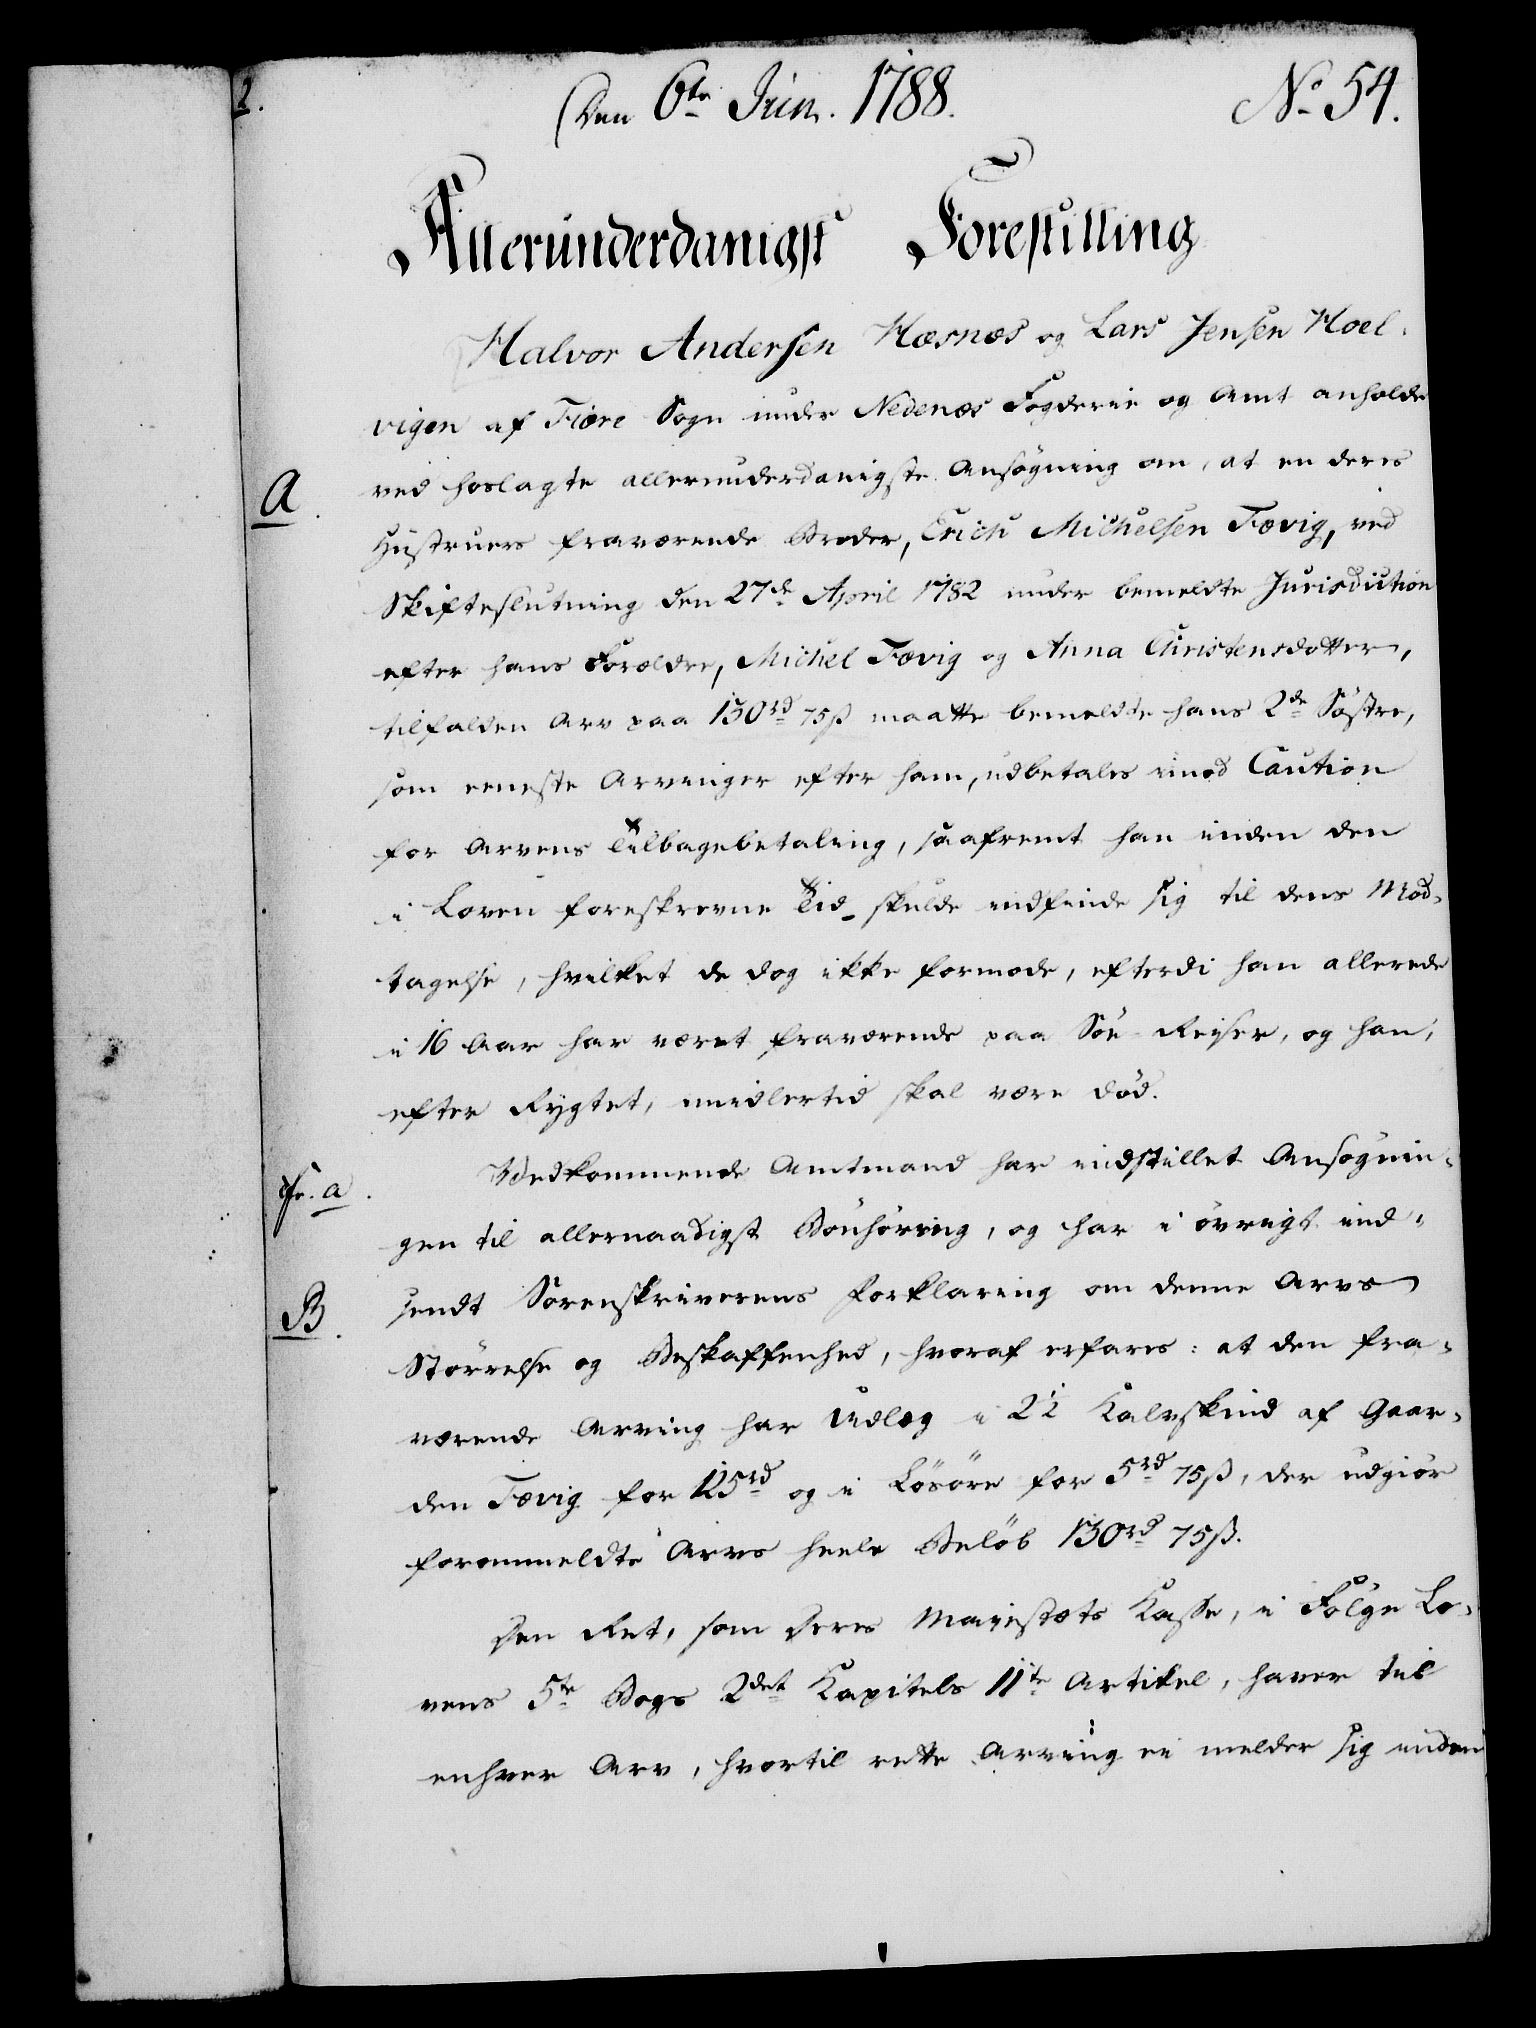 2.
Den 6te Jun. 1788. No 54.
Allerunderdanigst Forestilling
Halvor Andersen Hæsnæs og Lars Jensen Hoel-
vigen af Fiære Sogn under Nedenæs Fogderie og Amt anholde
A. ved hoslagte allerunderdanigste Ansøgning om, at en deres
Hustruers fraværende Broder, Erich Michelsen Fævig, ved
Skifteslutning den 27de April 1782 under bemeldte Jurisdiction
efter hans Forældre, Michel Fævig og Anna Christensdotter,
tilfalden Arv paa 130rd 75ß maatte bemeldte hans 2de Søstre,
som eeneste Arvinger efter ham, udbetales imod Caution
for Arvens Tilbagebetaling, saafremt han inden den
i Loven foreskrevne Tid skulde indfinde sig til dens Mod-
tagelse, hvilket de dog ikke formode, efterdi han allerede
i 16 Aar har været fraværende paa Søe-Reiser, og han,
efter Rygtet, imidlertid skal være død.
a. Vedkommende Amtmand har indstillet Ansøgnin-
gen til allernaadigst Bønhøring, og har i øvrigt ind-
B. sendt Sorenskriverens Forklaring om denne Arvs
Størrelse og Beskaffenhed, hvoraf erfares: at den fra-
værende Arving har Udlæg i Kalvskind af Gaar-
den Fævig for 125rd og i Løsøre for 5rd 75ß, der udgiør
forommeldte Arvs heele Beløb 130rd 75ß.
Den Ret, som Deres Majestæts Kasse, i Følge Lo-
vens 5te Bogs 2det Kapitels 11te Artikel, haver til
enhver Arv, hvortil rette Arving ei melder sig inden